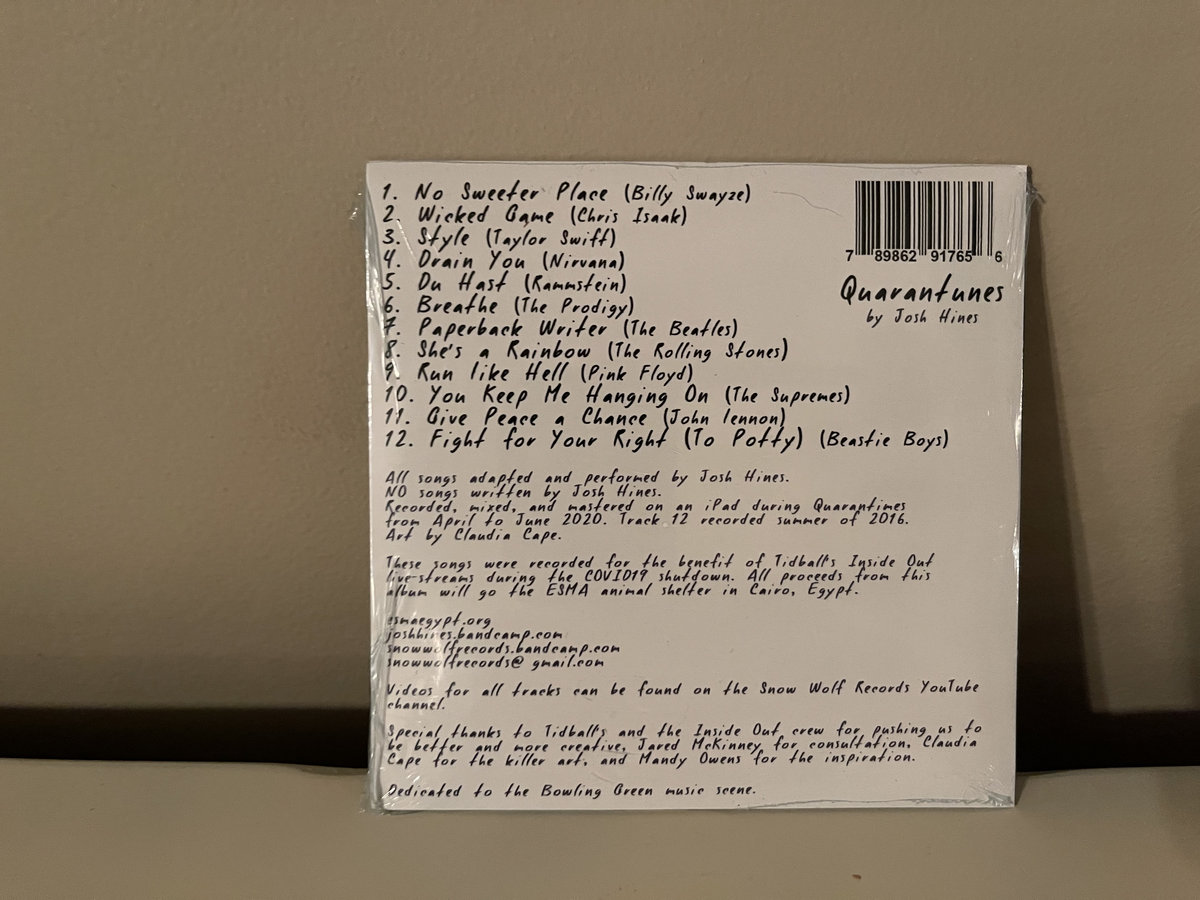 1. No Sweeter Place (Billy Swayze)
2. Wicked Game (Chris Isaak)
3. Style (Taylor Swift)
4. Drain You (Nirvana)
5. Du Hast (Rammstein)
6. Breathe (The Prodigy)
7. Paperback Writer (The Beatles)
8. She's a Rainbow (The Rolling Stones)
9. Run like Hell (Pink Floyd)
10. You Keep Me Hanging On (The Supremes)
11. Give Peace a Chance (John lennon)
12. Fight for Your Right (To Potty) (Beastie Boys)
7 89862 91765 6
Quarantunes
by Josh Hines
All songs adapted and performed by Josh Hines.
NO songs written by Josh Hines.
Recorded, mixed, and mastered on an iPad during Quarantimes
from April to June 2020. Track 12 recorded summer of 2016.
Art by Claudia Cape.
These songs were recorded for the benefit of Tidball's Inside Out
live-streams during the COVID19 shutdown. All proceeds from this
album will go the ESMA animal shelter in Cairo, Egypt.
esmaegypt.org
joshhines.bandcamp.com
snowwolfrecords.bandcamp.com
snowwolfrecords@ gmail.com
Videos for all tracks can be found on the Snow Wolf Records YouTube
channel.
Special thanks to Tidball's and the Inside Out crew for pushing us to
be better and more creative, Jared McKinney for consultation, Claudia
Cape for the killer art, and Mandy Owens for the inspiration.
Dedicated to the Bowling Green music scene.